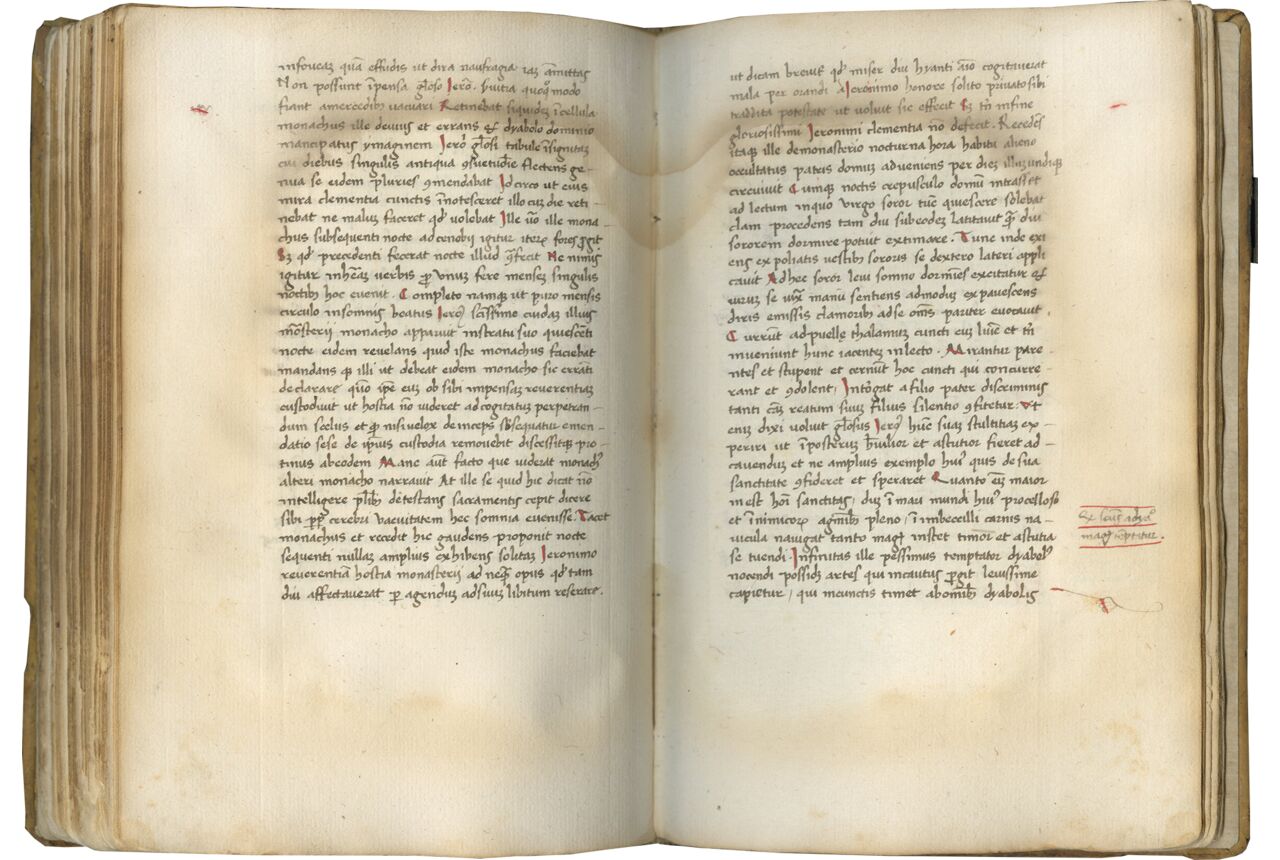 in foveaʒ quā effudis ut dira naufragia iaʒ āmittas
Non possunt īpensa gl̄oso Jerō. s̄vitia quoqꝫ modo
fiant amercedibꝫ vacuari Retinebat siquideʒ ī cellula
monachus ille devius et errans & dyabolo dominio
mancipatus ymaginem Jerō gl̄osi tabule īsignitaʒ
cui diebus singulis antiqua ꝯsuetudīe flectens ge-
nua se eidem pluries ꝯmendabat Idcirco ut eius
mira clementia cunctis īnotesceret illo cui die reti-
nebat ne maluʒ faceret qđ volebat Ille v̄o ille mona-
chus subsequenti nocte ad cenobii igitur iterꝫ fores ꝑgit
Sʒ qđ precedenti fecerat nocte illud
igitur verbis ꝑ unuʒ fere menseʒ singulis
noctibꝫ hoc evenit. Completo namqꝫ ut puto mensis
circulo in somnis beatus Jerōꝰ scīssimo cuidaʒ illius
mōasterii monacho apparuit in stratu suo quiescēti
nocte eidem revelans quid iste monachus faciebat
mandans ꝙ illi ut debeat eidem monacho sic errāti
declarare quō ipē euʒ ob sibi impensaʒ reverentiaʒ
custodivit ut hostia nō videret ad cogitatuʒ perpetran-
dum scelus et ꝙ nisi velox de inceps sbsequatur emen-
datio sese de ip̄ius custodia removebit discessitqꝫ pro-
tinus ab eodem Mane aut̄ facto que viderat monachꝰ
alteri monacho narravit At ille se quid hic dicat nō
intelligere detestans sacramentis cepit dicere
sibi ꝓpt̄ cerebri vacuitatem hec somnia evenisse. Tacet
monachus et recedit hic gaudens proponit nocte
sequenti nullaʒ amplius exhibens solitaʒ Jeronimo
reverentiā hostia monasterii ad nequā opus qđ tam
diu affectaverat ꝑagenduʒ ad suuʒ libitum reserare.
ut dicam breviꝰ qđ miser diu hyanti aīo cogitaverat
mala per orandi a Jeronimo honore solito privato sibi
traddita potestate ut voluit sic effecit Sʒ tn̄ in fine
gloriosissimi Jeronimi clementia nō defecit. Recedēs
itaqꝫ ille de monasterio nocturna hora habitu alieno
occultatus patris domuʒ adveniens per dieʒ illuʒ undiqꝫ
circuivit Cumqꝫ noctis crepusculo domū intrasset
ad lectum in quo virgo soror tūc quiescere solebat
clam procedens tam diu sub eodeʒ latitavit qua̅ diu
sororem dormire potuit extimare. Tunc inde exi
ens expoliatis vestibꝫ sororis se dextero lateri appli
cavit Ad hec soror levi somno dormiēs excitatur &
virus se manu sentiens admoduʒ expavescens
diris emissis clamoribꝫ ad se omēs pariter evocavit
Currūt ad puelle thalamuʒ cuncti cuʒ lumīe et tn̄
inveniunt hunc iacenteʒ in lecto. Mirantur pare-
ntes et stupent et cernūt hoc cuncti qui concurre-
rant et ꝯdolent. Intōgat a filio pater discriminis
tanti cāʒ reatum suuʒ filius silentio ꝯfitetur. Ut
eniʒ dixi voluit gl̄osus Jerōꝰ hūc suaʒ stultitiaʒ ex-
periri ut īposteruʒ hūilior et astutior fieret ad-
cavenduʒ et ne amplius exemplo huiꝰ quis de sua
sanctitate ꝯfideret et speraret Quanto em̄ maior
inest hoī sanctitas, duʒ ī mari mundi huiꝰ procelloso
et īnimicorꝫ agmībꝫ pleno, ī imbecilli carnis na-
vicula navigat tanto magꝭ instet timor et astutia
se tuendi. Infinitas ille pessimus temptator dyabolꝰ
nocendi possideʒ artes qui incautus ꝑgit levissime
capietur, qui in cunctis timet abomībꝫ dyabolis
magꝭ tēptatur.